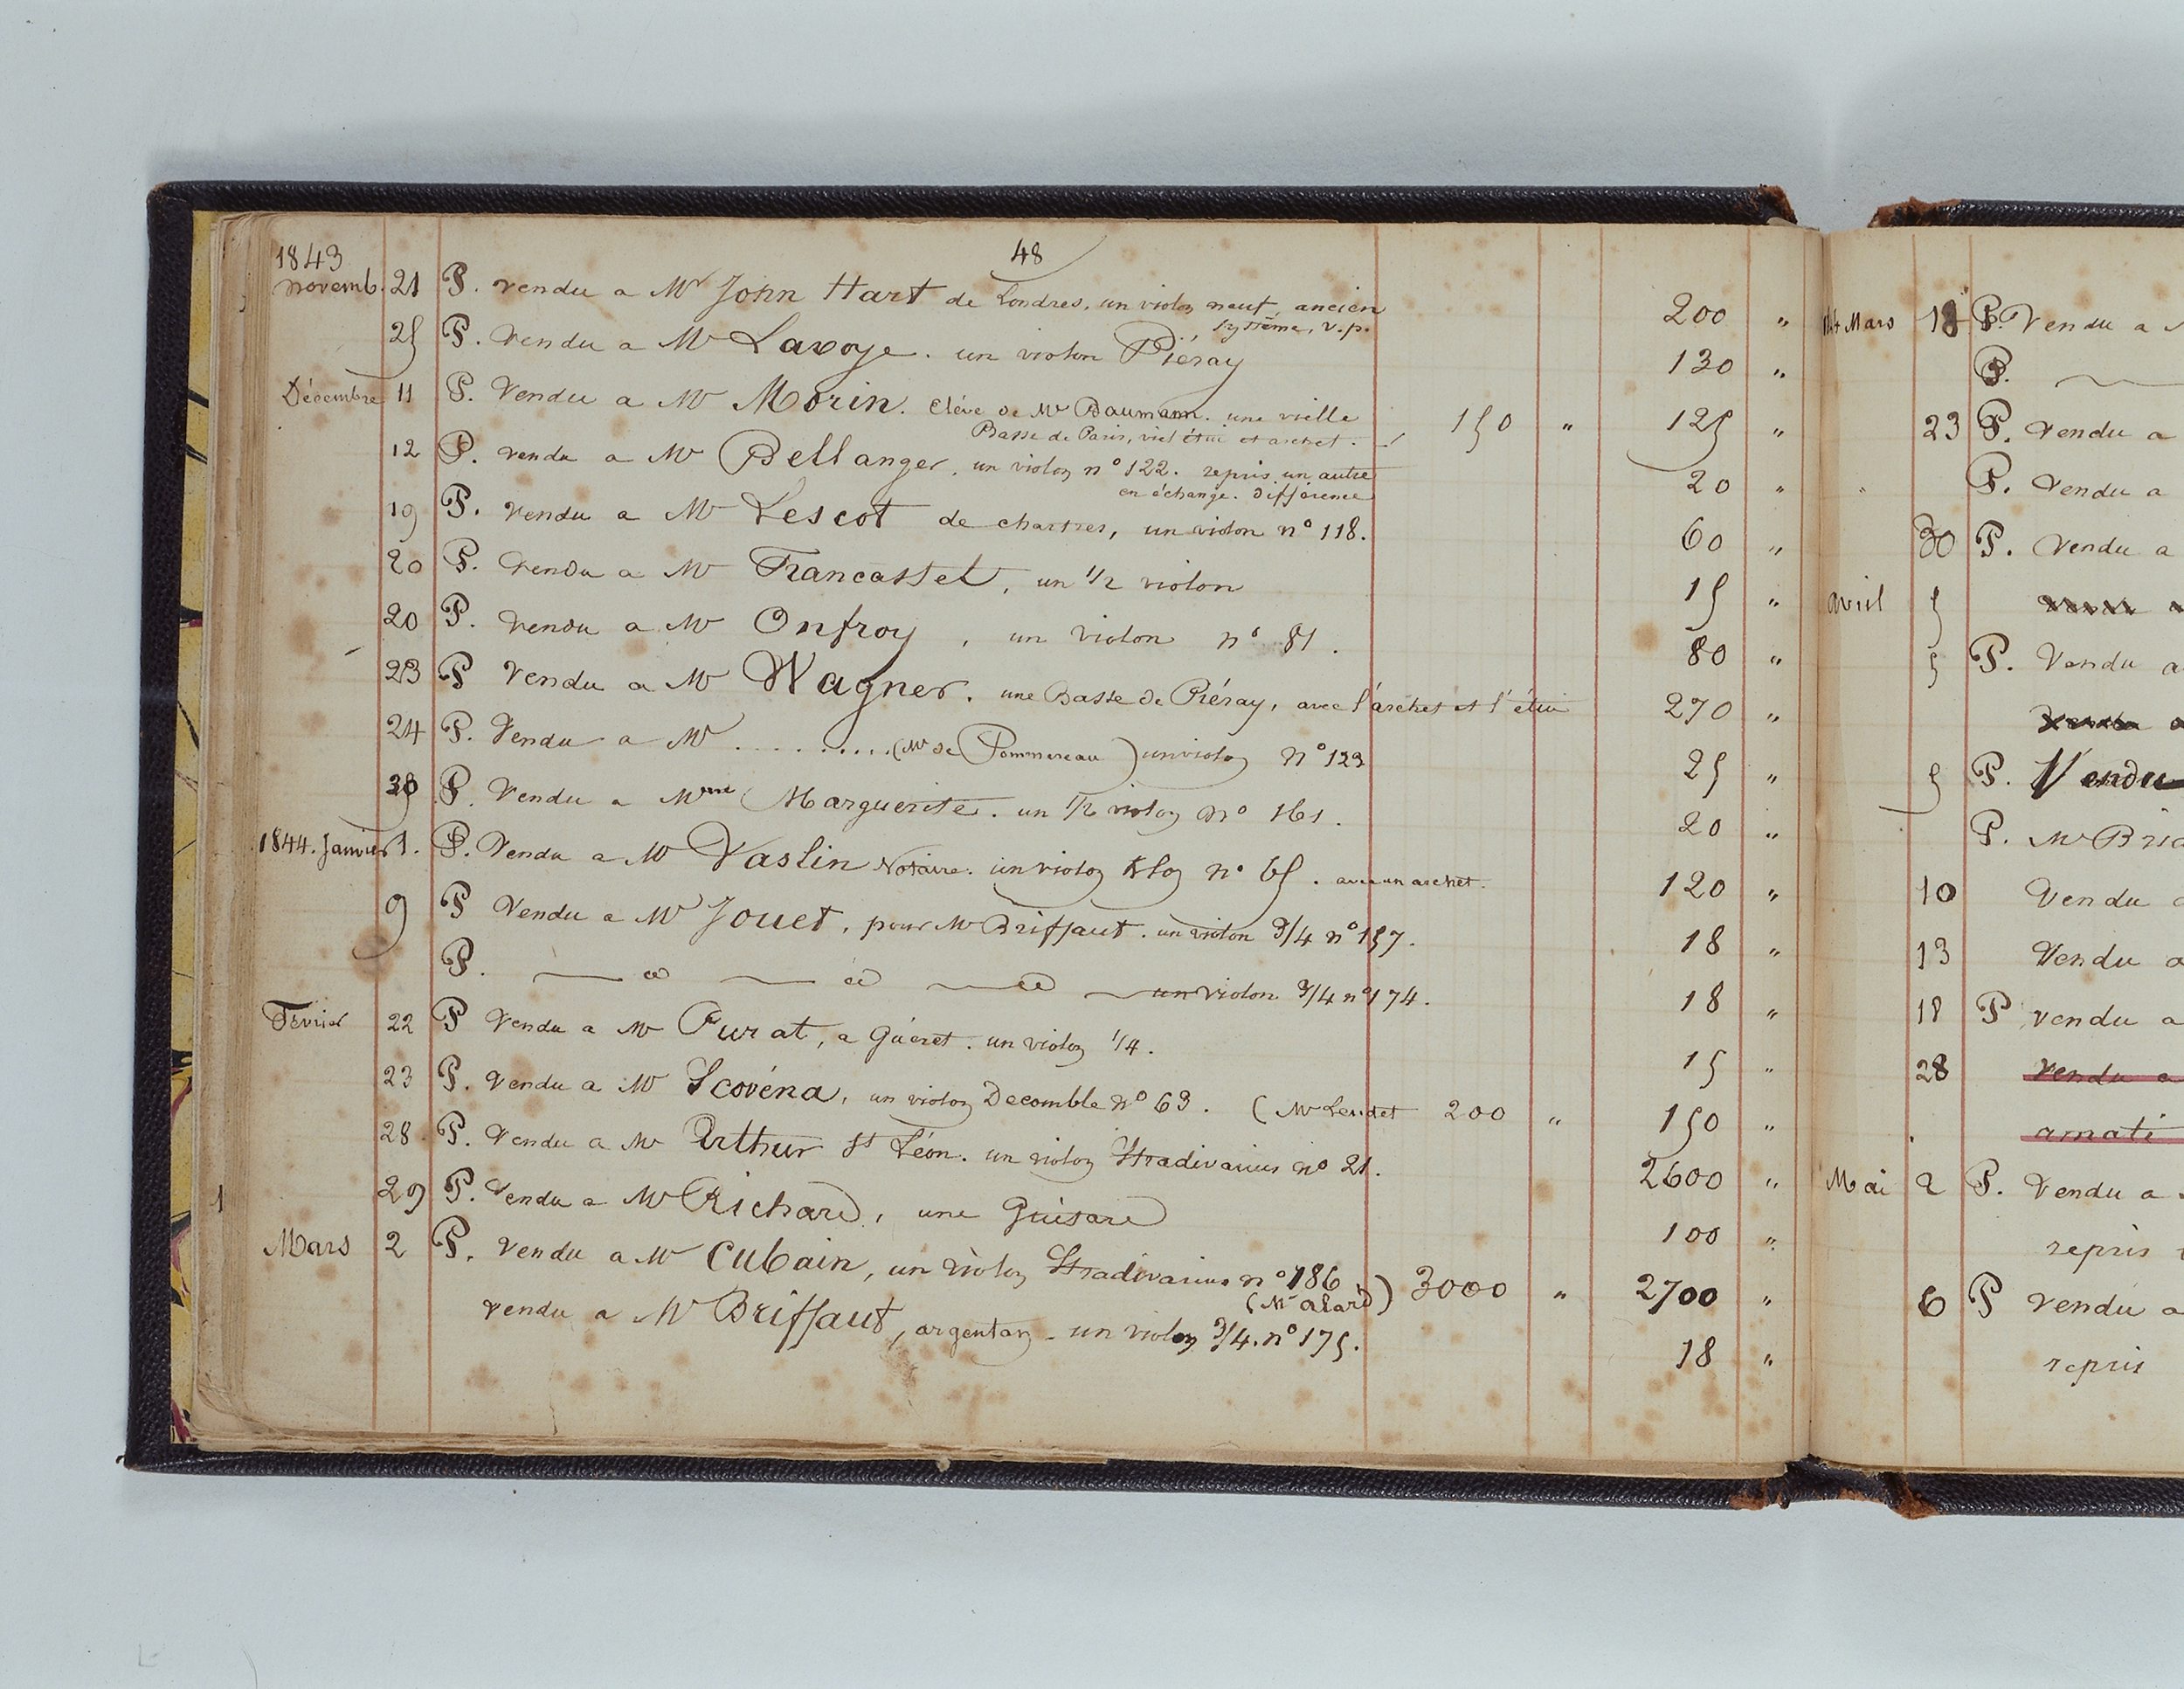 48
1843
novemb. 21 P. vendu a Mr John Hart de Londres, un violon neuf, ancien
système, v.p. 200 "
25 P. Vendu a Mr Lavoye. un violon Piéray 130 "
Décembre 11 P. Vendu a Mr Morin. Eléve de Mr Baumann. une vielle
Basse de Paris, viel étui et archet. 150 " 125 "
12 P. vendu a Mr Bellanger. un violon n° 122. repris un autre
en échange. différence 20 "
19 P. vendu a Mr Lescot de chartres, un violon n° 118. 60 "
20 P. vendu a Mr Francastel, un 1/2 violon 15 "
20 P. vendu a Mr Onfroy, un violon n° 81. 80 "
23 P Vendu a Mr Wagner. une Basse de Piéray, avec l'archet et l'étui 270 "
24 P. Vendu a Mr .......... (Mr de Pommereau) un violon n° 123 25 "
30 P. Vendu a Mme Marguerite. un 1/2 violon n° 161. 20 "
1844. Janvier 1. P. Vendu a Mr Vaslin Notaire. un violon Kloz n° 65. avec un archet. 120 "
9 P Vendu a Mr Jouet, pour Mr Briffaut. un violon 3/4 n° 157. 18 "
P. un violon 3/4 n° 174. 18 "
Fevrier 22 P Vendu a Mr Furat, a Guéret. un violon 1/4. 15 "
23 P. Vendu a Mr Scovéna, un violon Decomble n° 63. (Mr Leudet 200 " 150 "
28 P. Vendu a Mr Arthur St Léon. un violon Stradivarius n° 21. 2600 "
29 P. Vendu a Mr Richard, une Guitare 100 "
Mars 2 P. Vendu a Mr Cubain, un violon Stradivarius n° 186
(Mr alard) 3000 " 2700 "
vendu a Mr Briffaut, argentan - un violon 3/4. n° 175. 18 "
1
Mars 18 P. Vendu a
P.
23 P. Vendu a
P. Vendu a
30 P. Vendu a
avril 5
5 P. Vendu a
5 P. Vendu
P. Mr
10 Vendu
13 Vendu a
18 P vendu a
28 vendu a
amati
Mai 2 P. Vendu a
repris
6 P vendu a
repris